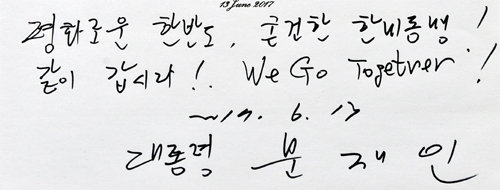 13 June 2017
평화로운 한반도, 굳건한 한미동맹!
같이 갑시다!. We Go Together!
2017. 6. 13
대통령 문 재 인